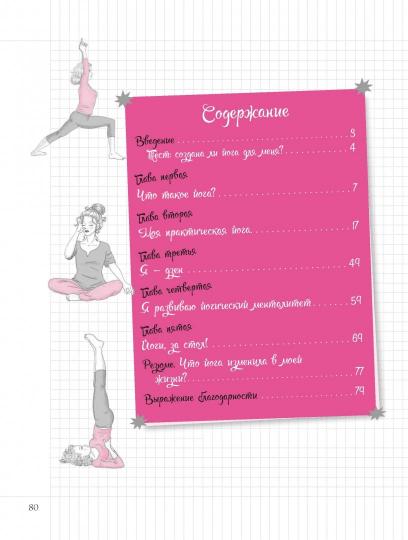 Содержание
Введение . . . . . . . . . . . . . . . . . . . . . . . . . . . . . 3
Тест: создана ли йога для меня? . . . . . . . . . . . . 4
Глава первая
Что такое йога? . . . . . . . . . . . . . . . . . . . . . . . . 7
Глава вторая
Моя практическая йога . . . . . . . . . . . . . . . . . . 17
Глава третья
Я – дзен . . . . . . . . . . . . . . . . . . . . . . . . . . . . . 49
Глава четвертая
Я развиваю йогический менталитет . . . . . . . . 59
Глава пятая
Йоги, за стол! . . . . . . . . . . . . . . . . . . . . . . . . . 69
Резюме. Что йога изменила в моей
жизни? . . . . . . . . . . . . . . . . . . . . . . . . . . . . . . 77
Выражение благодарности . . . . . . . . . . . . . . . 79
80